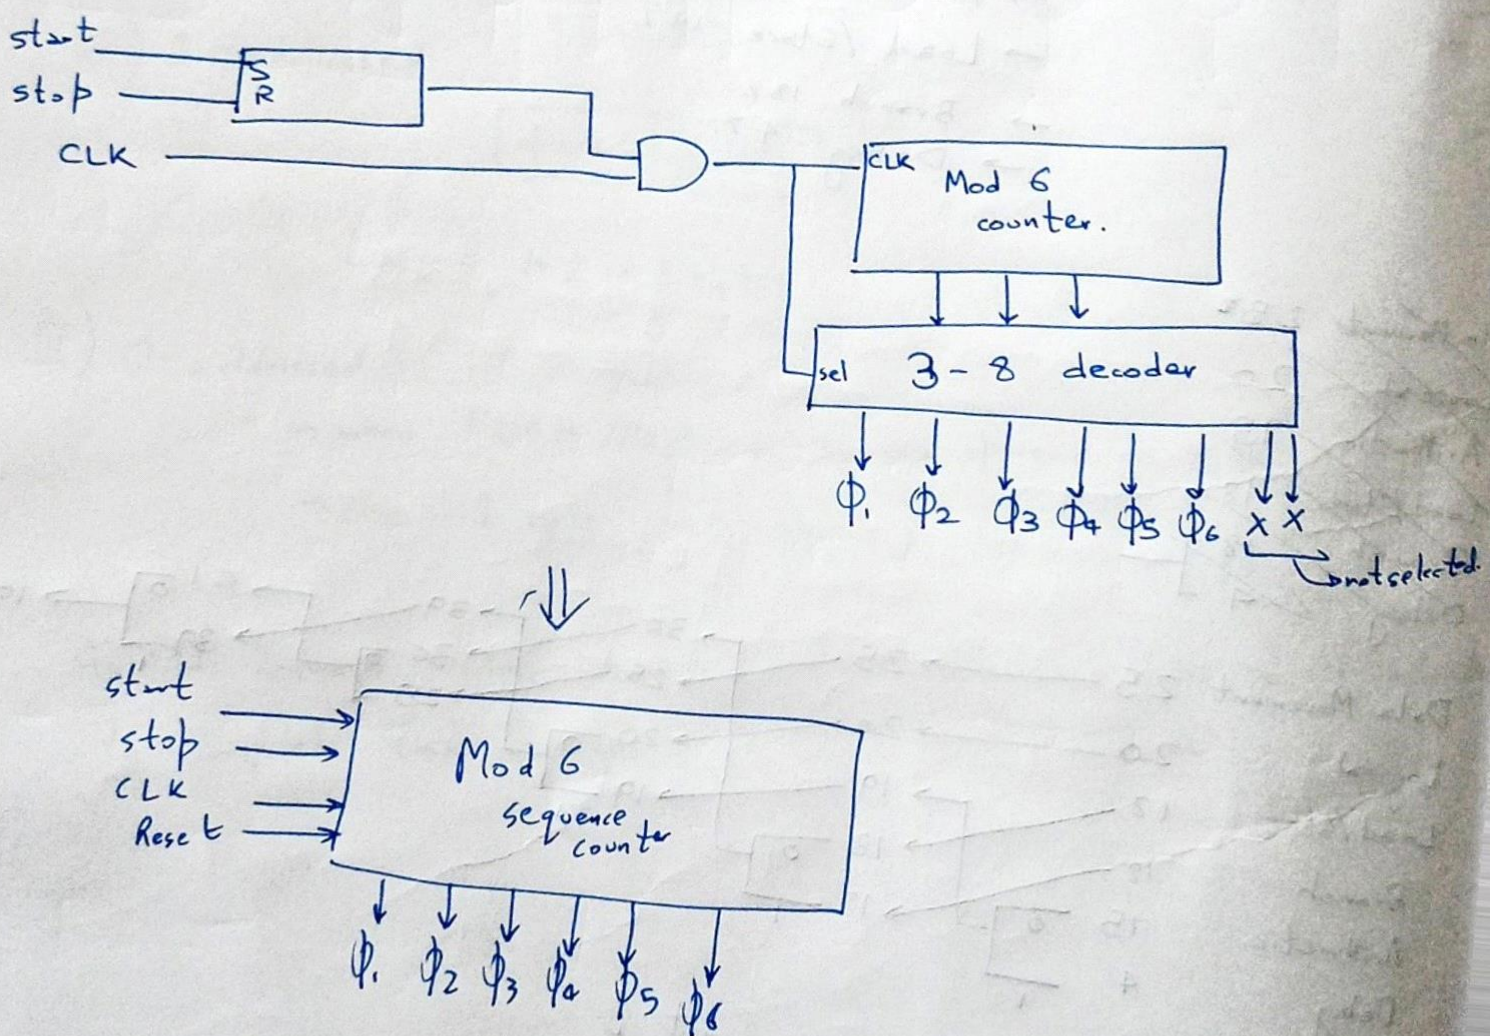 start
stop
S
R
CLK
CLK
Mod 6
counter.
sel 3-8 decoder
ϕ1 ϕ2 ϕ3 ϕ4 ϕ5 ϕ6 X X
not selected.
start
stop
CLK
Reset
Mod 6
sequence
counter
ϕ1 ϕ2 ϕ3 ϕ4 ϕ5 ϕ6